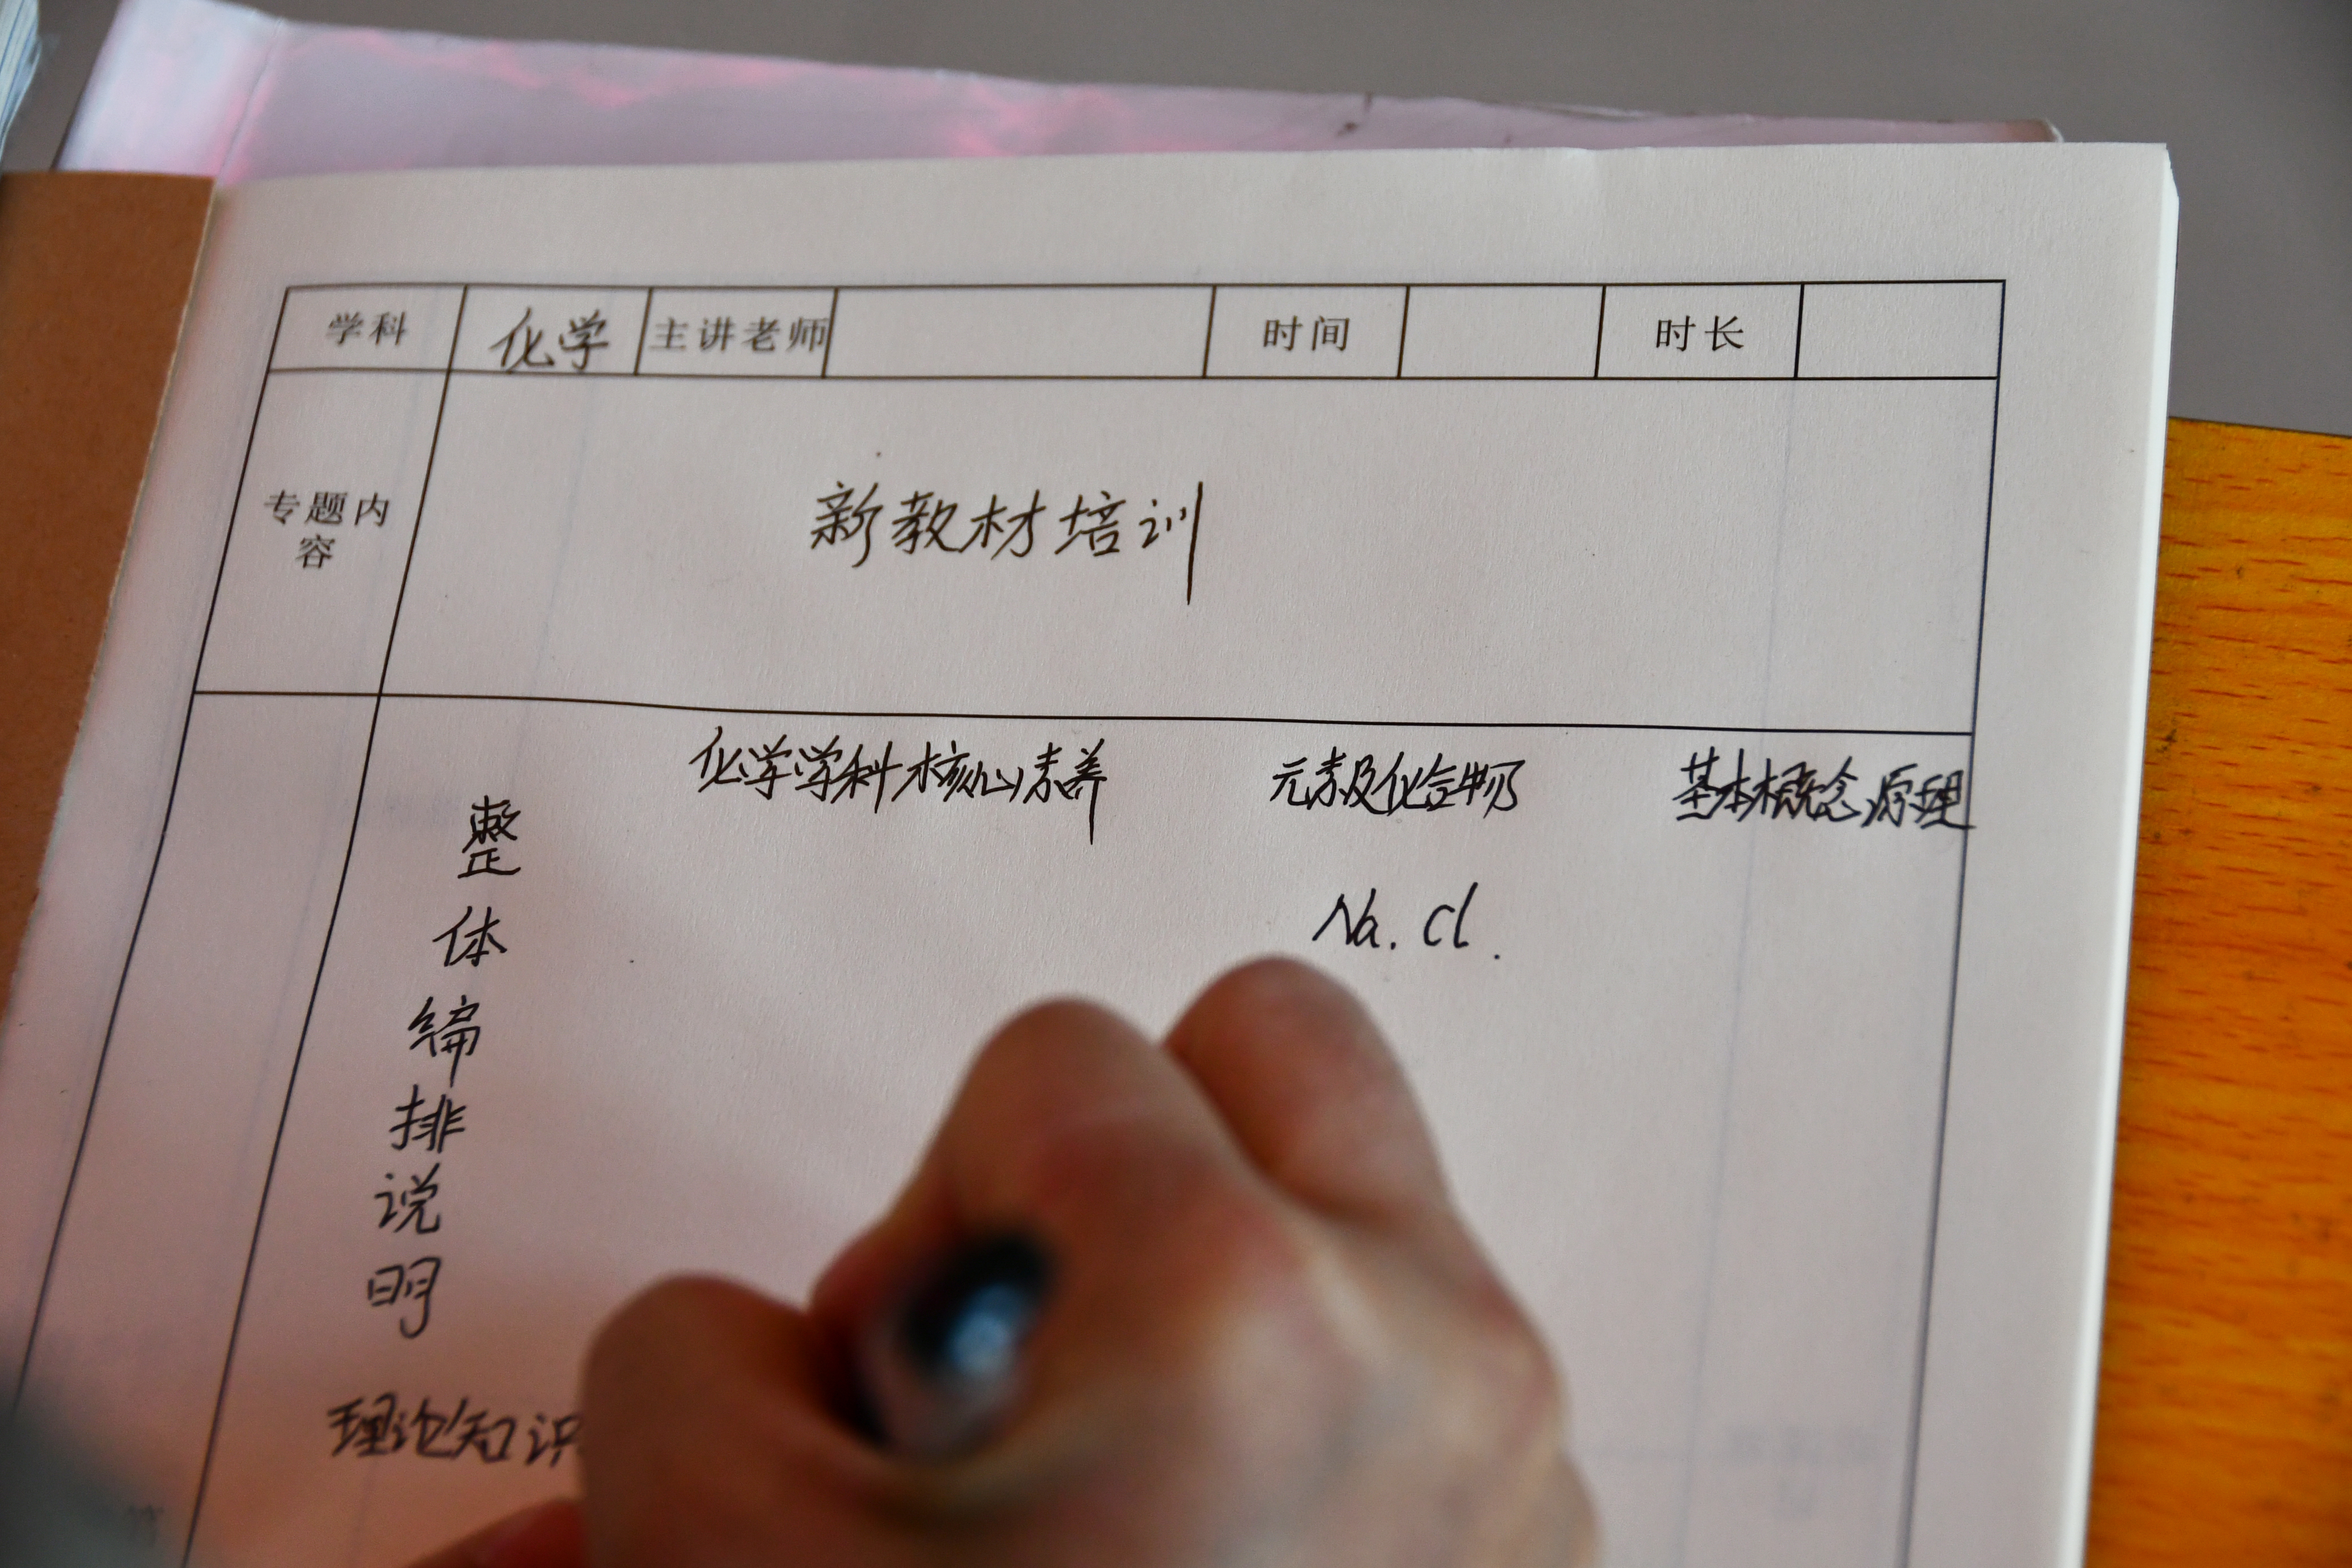 学科 化学 主讲老师 时间 时长
专题内
容
新教材培训
化学学科核心素养 元素及化合物 基本概念原理
Na. Cl.
整
体
编
排
说
明
理论知识